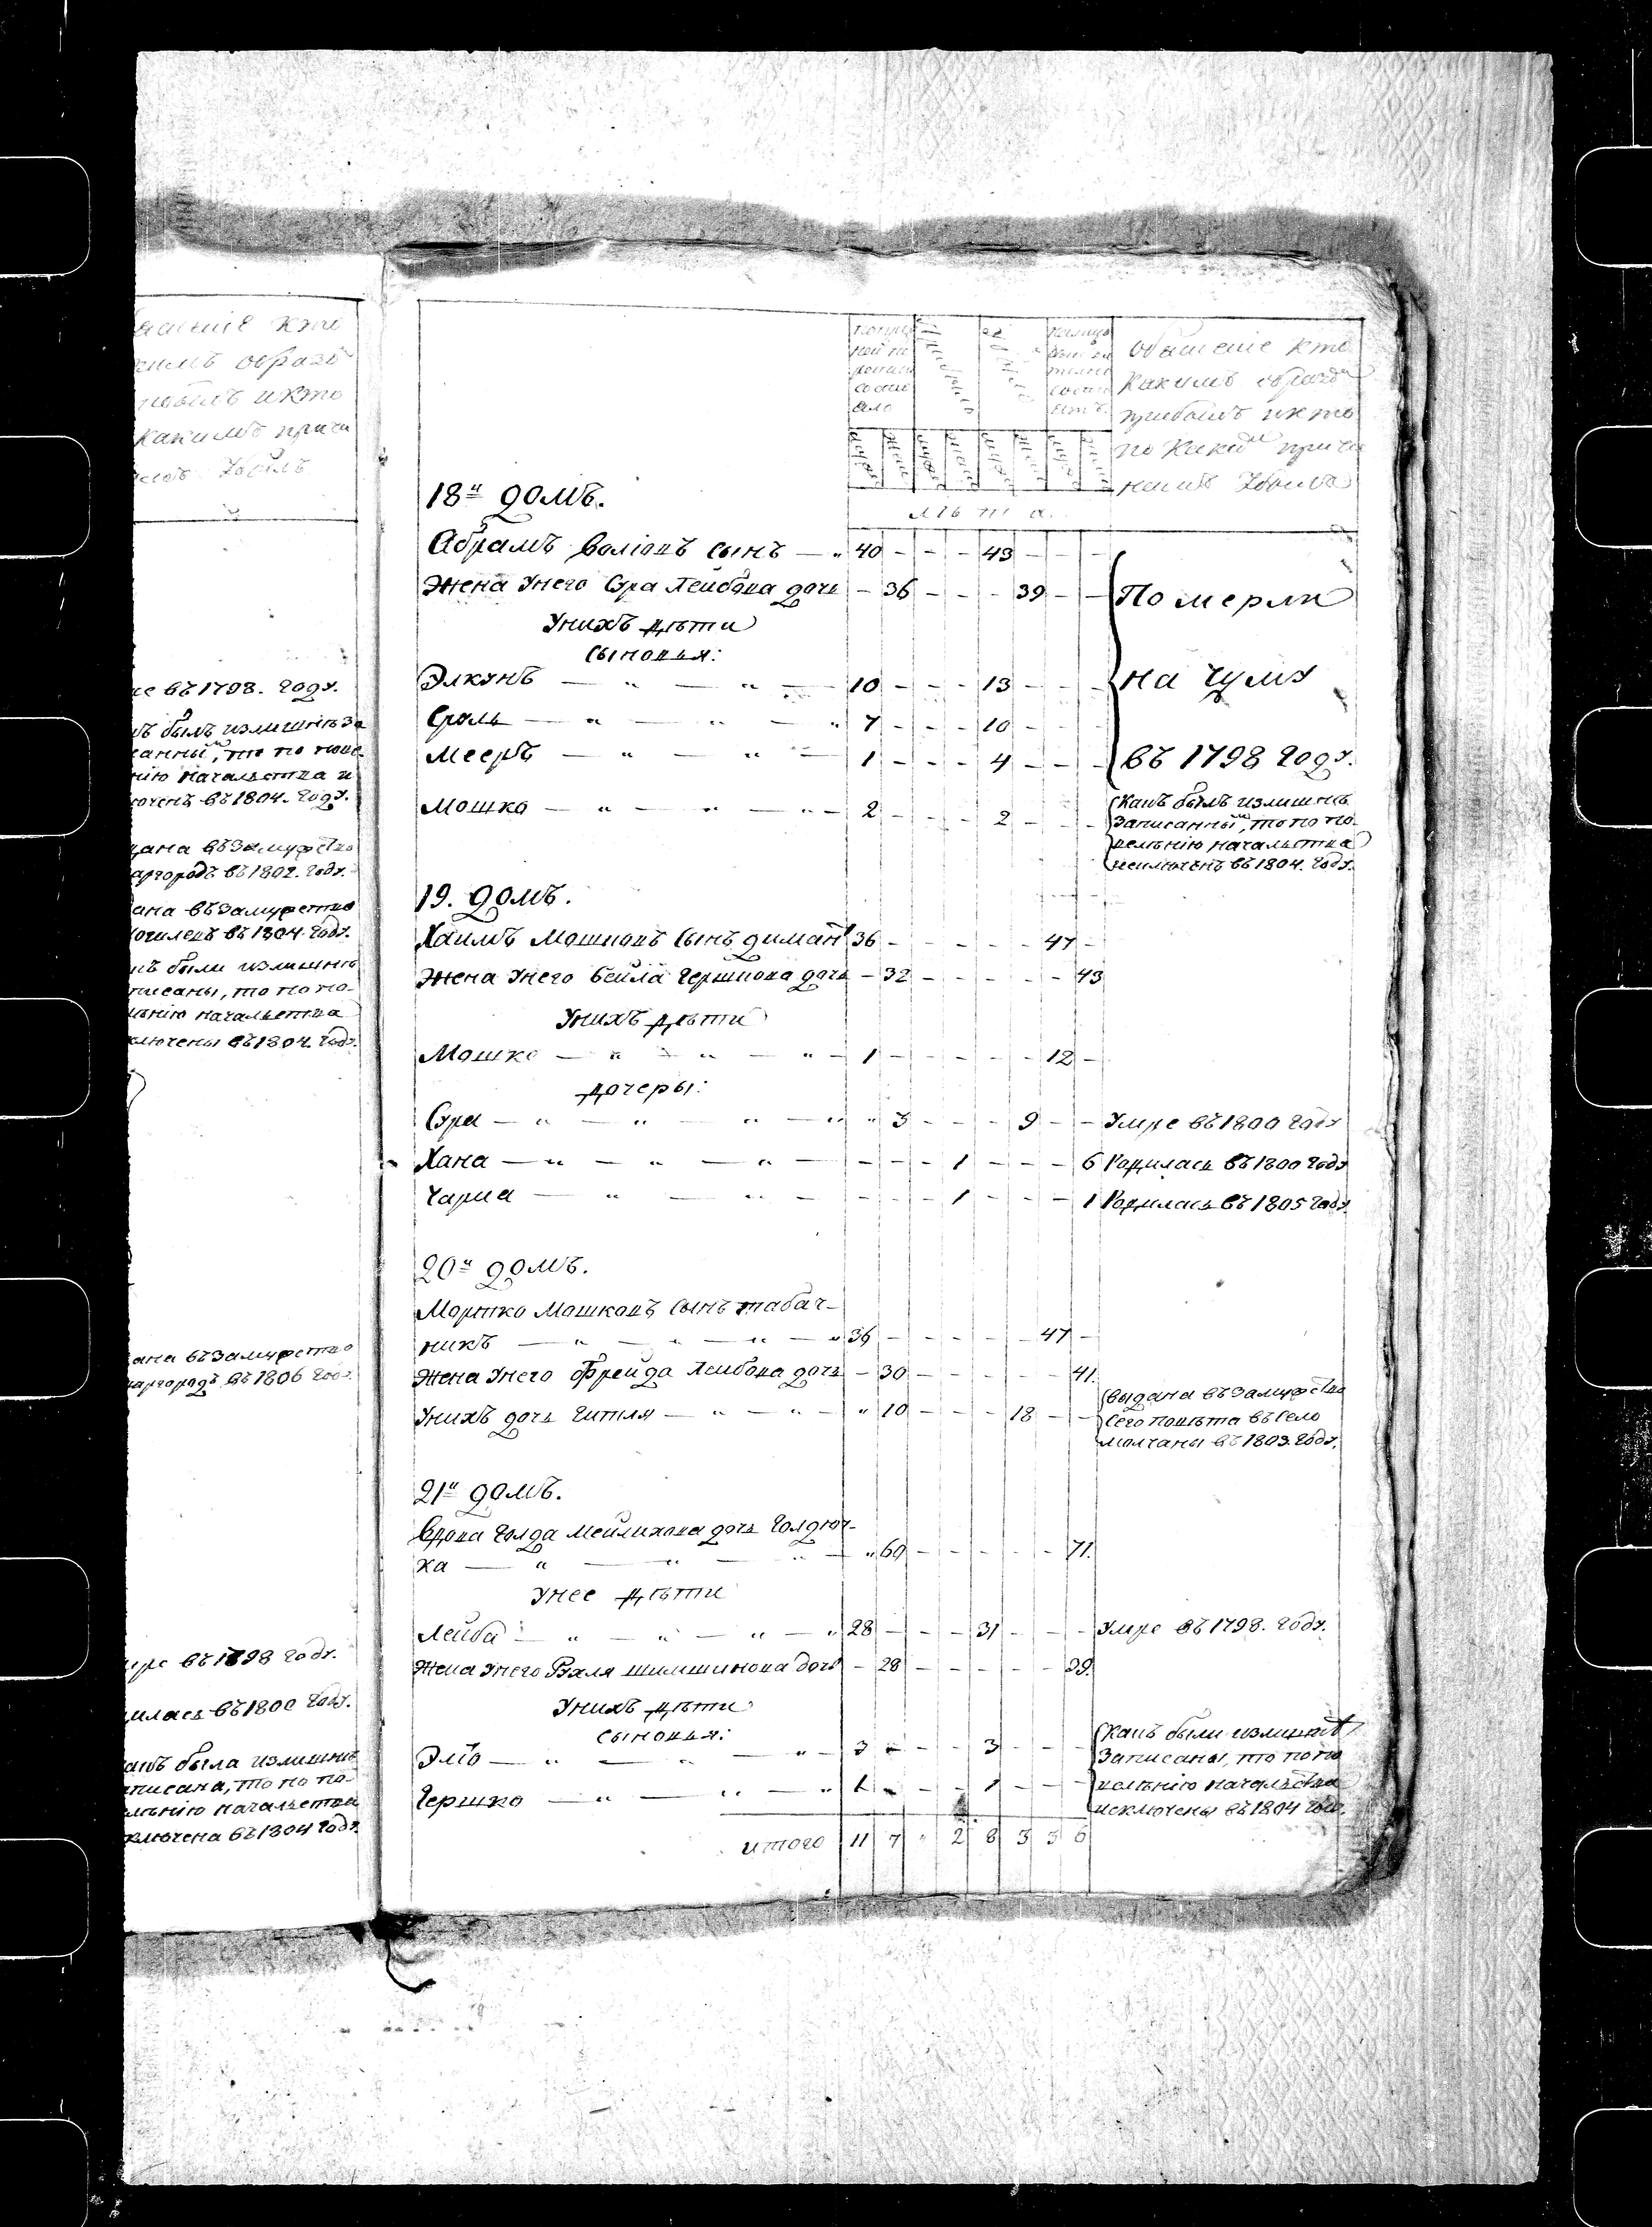 кимъ образо
и кто
какимъ причи
въ 1798. году.
ъ былъ излишнѣ за
санный, то по пове-
нію началства и
ючень въ 1804. году.
дана въ Замужство
аргородъ въ 1802. году.
дана въ Замужство
въ 1804. году.
ъ были излишнѣ
писаны, то по по-
лѣнію началства
ключены въ 1804. году.
дана въ Замужство
аргородъ въ 1806 году.
мре въ 1798 году.
илась въ 1800 году.
какъ была излишнѣ
аписана, то по по-
лѣнію началства
ключена въ 1804 году.
Обясненіе кто
какимъ образомъ
прибылъ и кто
по какимъ причи
намъ убылъ
лѣта.
18й домъ.
Абрамъ Волковъ сынъ — „ 40 - - - 43 - - -
Жена Унего Сура Лейбова дочь - 36 - - - 39 - -
Унихъ дѣти
Сыновья:
Элкунъ — „ — „ — 10 - - - 13 - - -
Сроль — „ — „ — „ 7 - - - 10 - - -
Мееръ — „ — „ — 1 - - - 4 - - -
Померли
на чуму
въ 1798 году.
Мошко — „ — „ — „ - 2 - - - 2 - - -
Какъ былъ излишнѣ
Записанный, то по по-
велѣнію началства
исключенъ въ 1804. году.
19. домъ.
Хаимъ Мошковъ Сынъ 36 - - - - - 47 -
Жена Унего Бейла Гершкова дочь - 32 - - - - - 43
Унихъ дѣти
Мошко — „ — „ — „ - 1 - - - - - 12 -
дочеры:
Сура — „ — „ — „ — „ „ 3 - - - 9 - - Умре въ 1800 году
Хана — „ — „ — „ — - - - 1 - - - 6 Родилась въ 1800 году
Чарна — „ — „ — - - - 1 - - - 1 Родилась въ 1805 году.
20й домъ.
Мортко Мошковъ Сынъ табач-
никъ — „ — „ — „ — „ 36 - - - - - 47 -
Жена Унего Фрейда Лейбова дочь - 30 - - - - - 41.
Унихъ дочь Гитля — „ — „ — „ 10 - - - 18 - -
Выдана въ Замужство
Сего повѣта въ Село
Молчаны въ 1803. году.
21й домъ.
Вдова Голда Мейлихова дочь
ка — „ — „ — „ — „ 60 - - - - - 71.
Унее дѣти
Лейба — „ — „ — „ — „ 28 - - - 31 - - - Умре въ 1798. году.
Жена Унего Рухля Шимшинова дочь - 28 - - - - - 39.
Унихъ дѣти
Сыновья:
Элю — „ — „ — „ - 3 - - - 3 - - -
Гершко — „ — „ — „ 1 - - - 1 - - -
Какъ были излишнѣ
Записаны, то по по
велѣнію началства
исключены въ 1804 году.
итого 11 7 „ 2 8 3 3 6